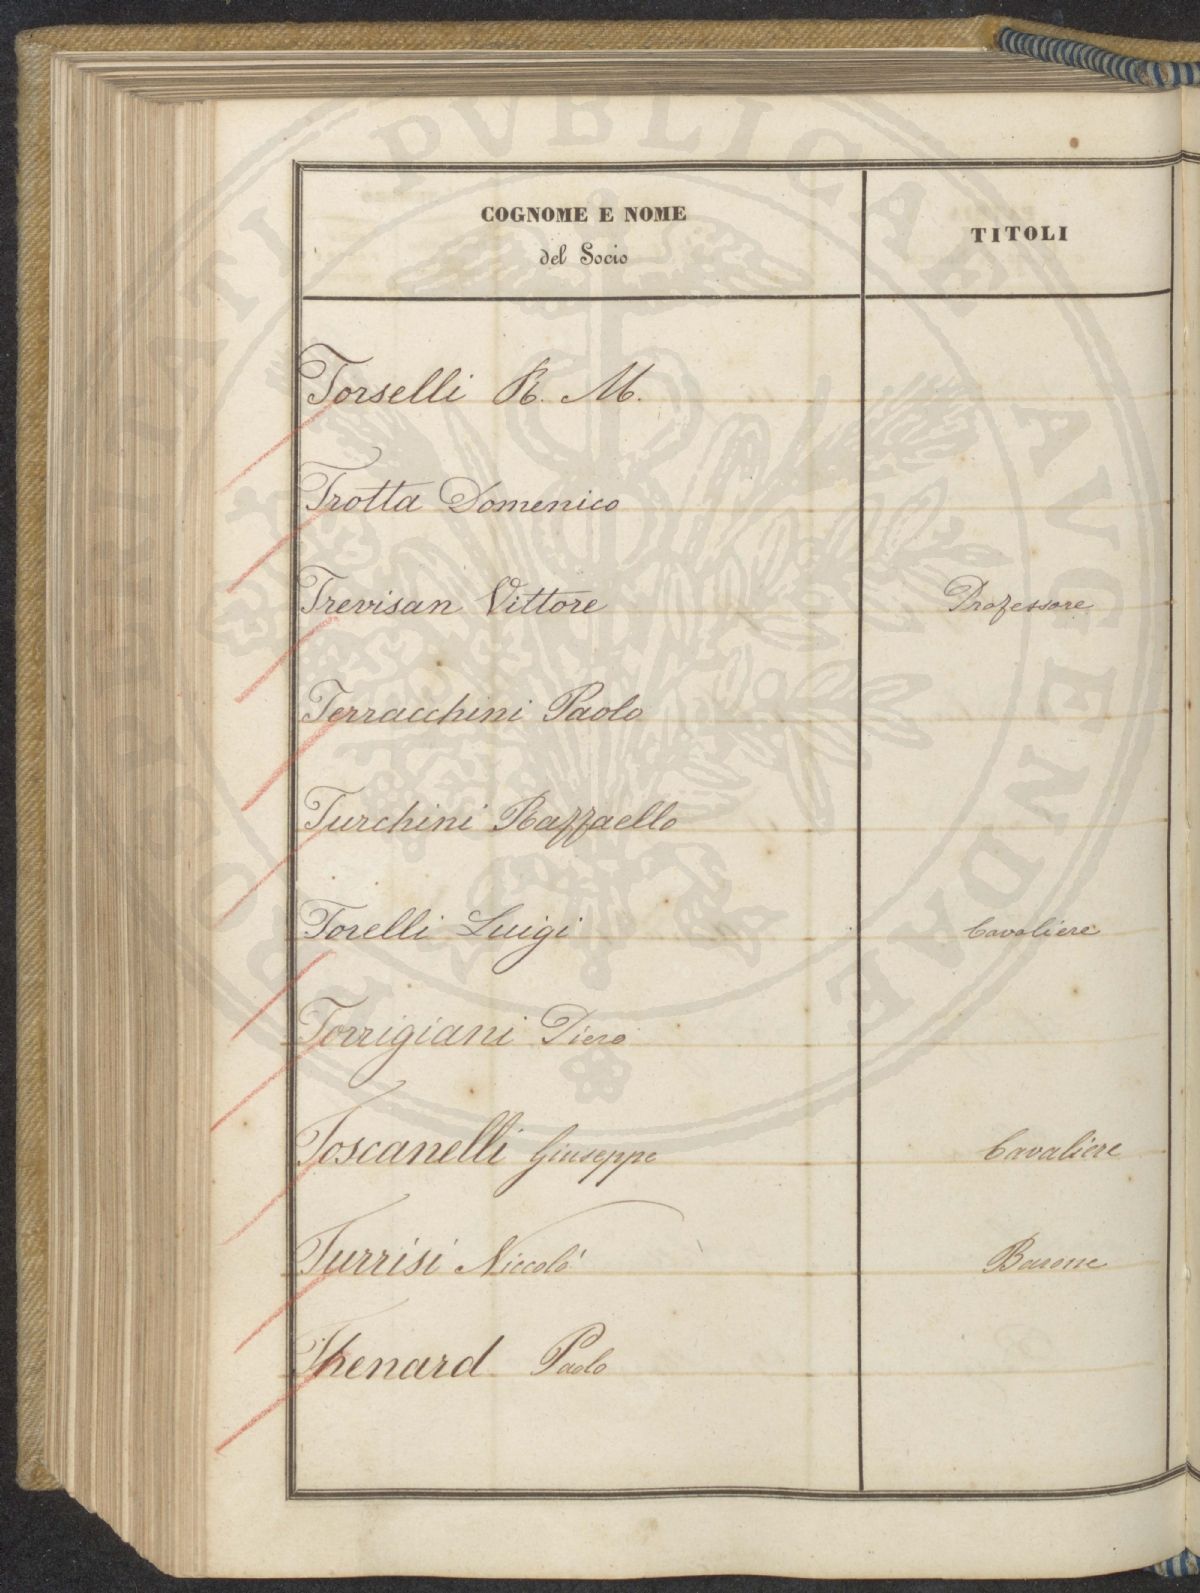 COGNOME E NOME
del Socio
TITOLI
Torselli R. M.
Trotta Domenico
Trevisan Vittore Professore
Terracchini Paolo
Turchini Raffaello
Torelli Luigi Cavaliere
Torrigiani Piero
Toscanelli Giuseppe Cavaliere
Turrisi Niccolò Barone
Thenard Paolo
PROSPERITATI PVBLICAE AVGENDAE